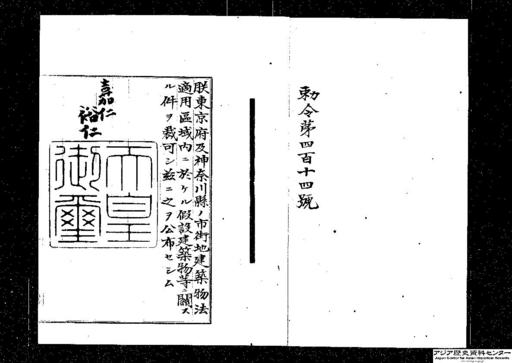 勅令第四百十四號
朕東京府及神奈川縣ノ市街地建築物法
適用區域內ニ於ケル假設建築物等ニ關ス
ル件ヲ裁可シ茲ニ之ヲ公布セシム
嘉仁
裕仁
天皇
御璽
アジア歴史資料センター
Japan Center for Asian Historical Records